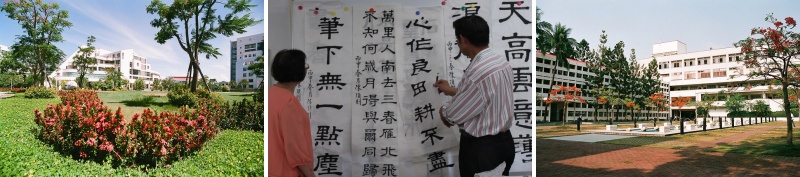 天高雲意
浪
心作良田耕不盡
萬里人南去三春雁北飛
不知何歲月得與爾同歸
筆下無一點塵